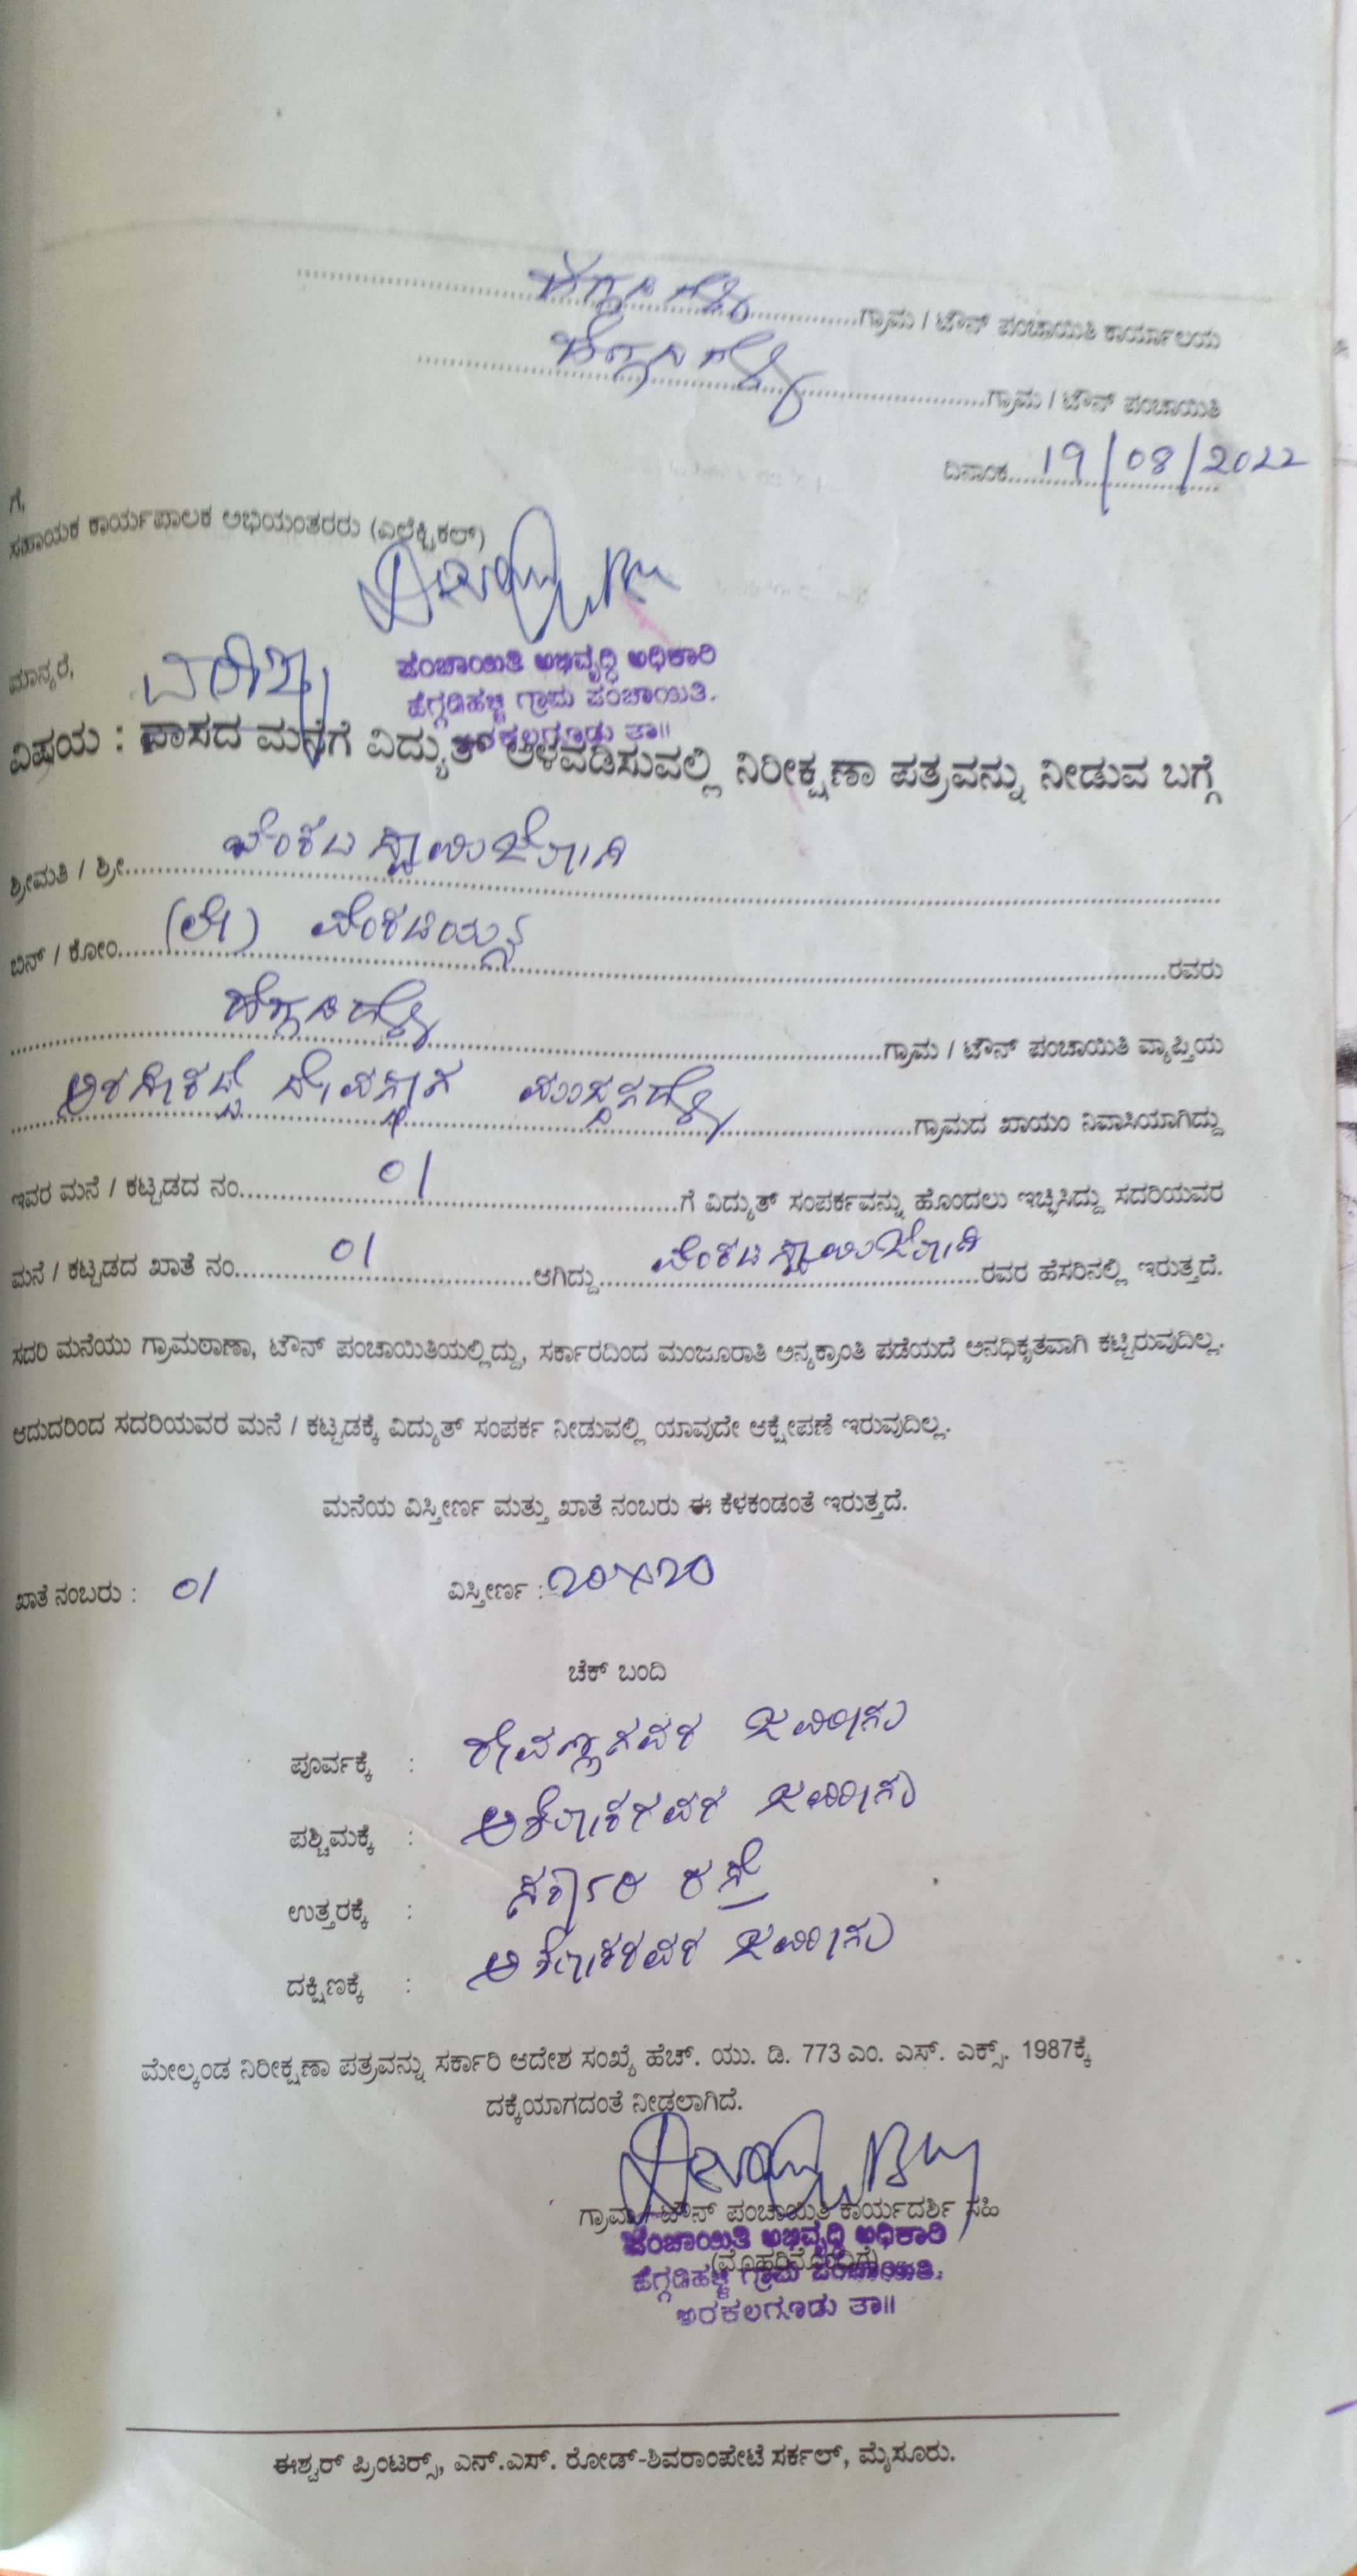 ಗ್ರಾಮ / ಟೌನ್ ಪಂಚಾಯಿತಿ ಕಾರ್ಯಾಲಯ
ಗ್ರಾಮ / ಟೌನ್ ಪಂಚಾಯಿತಿ
ದಿನಾಂಕ 19/08/2022
ಗೆ,
ಸಹಾಯಕ ಕಾರ್ಯಪಾಲಕ ಅಭಿಯಂತರರು (ಎಲೆಕ್ಟ್ರಿಕಲ್)
ಮಾನ್ಯರೆ,
ಪಂಚಾಯಿತಿ ಅಭಿವೃದ್ಧಿ ಅಧಿಕಾರಿ
ಗ್ರಾಮ ಪಂಚಾಯಿತಿ.
ಅರಕಲಗೂಡು ತಾ॥
ವಿಷಯ : ವಾಸದ ಮನೆಗೆ ವಿದ್ಯುತ್ ಅಳವಡಿಸುವಲ್ಲಿ ನಿರೀಕ್ಷಣಾ ಪತ್ರವನ್ನು ನೀಡುವ ಬಗ್ಗೆ
ಶ್ರೀಮತಿ / ಶ್ರೀ ವೆಂಕಟಸ್ವಾಮಿಬೋವಿ
ಬಿನ್ / ಕೋಂ (ಲೇ) ರವರು
ಗ್ರಾಮ / ಟೌನ್ ಪಂಚಾಯಿತಿ ವ್ಯಾಪ್ತಿಯ
ಗ್ರಾಮದ ಖಾಯಂ ನಿವಾಸಿಯಾಗಿದ್ದು
ಇವರ ಮನೆ / ಕಟ್ಟಡದ ನಂ 01 ಗೆ ವಿದ್ಯುತ್ ಸಂಪರ್ಕವನ್ನು ಹೊಂದಲು ಇಚ್ಛಿಸಿದ್ದು ಸದರಿಯವರ
ಮನೆ / ಕಟ್ಟಡದ ಖಾತೆ ನಂ 01 ಆಗಿದ್ದು ವೆಂಕಟಸ್ವಾಮಿಬೋವಿ ರವರ ಹೆಸರಿನಲ್ಲಿ ಇರುತ್ತದೆ.
ಸದರಿ ಮನೆಯು ಗ್ರಾಮಠಾಣಾ, ಟೌನ್ ಪಂಚಾಯಿತಿಯಲ್ಲಿದ್ದು, ಸರ್ಕಾರದಿಂದ ಮಂಜೂರಾತಿ ಅನ್ಯಕ್ರಾಂತಿ ಪಡೆಯದೆ ಅನಧಿಕೃತವಾಗಿ ಕಟ್ಟಿರುವುದಿಲ್ಲ.
ಆದುದರಿಂದ ಸದರಿಯವರ ಮನೆ / ಕಟ್ಟಡಕ್ಕೆ ವಿದ್ಯುತ್ ಸಂಪರ್ಕ ನೀಡುವಲ್ಲಿ ಯಾವುದೇ ಆಕ್ಷೇಪಣೆ ಇರುವುದಿಲ್ಲ.
ಮನೆಯ ವಿಸ್ತೀರ್ಣ ಮತ್ತು ಖಾತೆ ನಂಬರು ಈ ಕೆಳಕಂಡಂತೆ ಇರುತ್ತದೆ.
ಖಾತೆ ನಂಬರು : 01 ವಿಸ್ತೀರ್ಣ : 20X20
ಚೆಕ್ ಬಂದಿ
ಪೂರ್ವಕ್ಕೆ : ಜಮೀನು
ಪಶ್ಚಿಮಕ್ಕೆ : ಜಮೀನು
ಉತ್ತರಕ್ಕೆ : ರಸ್ತೆ
ದಕ್ಷಿಣಕ್ಕೆ : ಜಮೀನು
ಮೇಲ್ಕಂಡ ನಿರೀಕ್ಷಣಾ ಪತ್ರವನ್ನು ಸರ್ಕಾರಿ ಆದೇಶ ಸಂಖ್ಯೆ ಹೆಚ್. ಯು. ಡಿ. 773 ಎಂ. ಎಸ್. ಎಕ್ಸ್. 1987ಕ್ಕೆ
ದಕ್ಕೆಯಾಗದಂತೆ ನೀಡಲಾಗಿದೆ.
ಗ್ರಾಮ / ಟೌನ್ ಪಂಚಾಯಿತಿ ಕಾರ್ಯದರ್ಶಿ ಸಹಿ
ಪಂಚಾಯಿತಿ ಅಭಿವೃದ್ಧಿ ಅಧಿಕಾರಿ
ಗ್ರಾಮ ಪಂಚಾಯಿತಿ.
ಅರಕಲಗೂಡು ತಾ॥
ಈಶ್ವರ್ ಪ್ರಿಂಟರ್ಸ್, ಎನ್.ಎಸ್. ರೋಡ್-ಶಿವರಾಂಪೇಟೆ ಸರ್ಕಲ್, ಮೈಸೂರು.